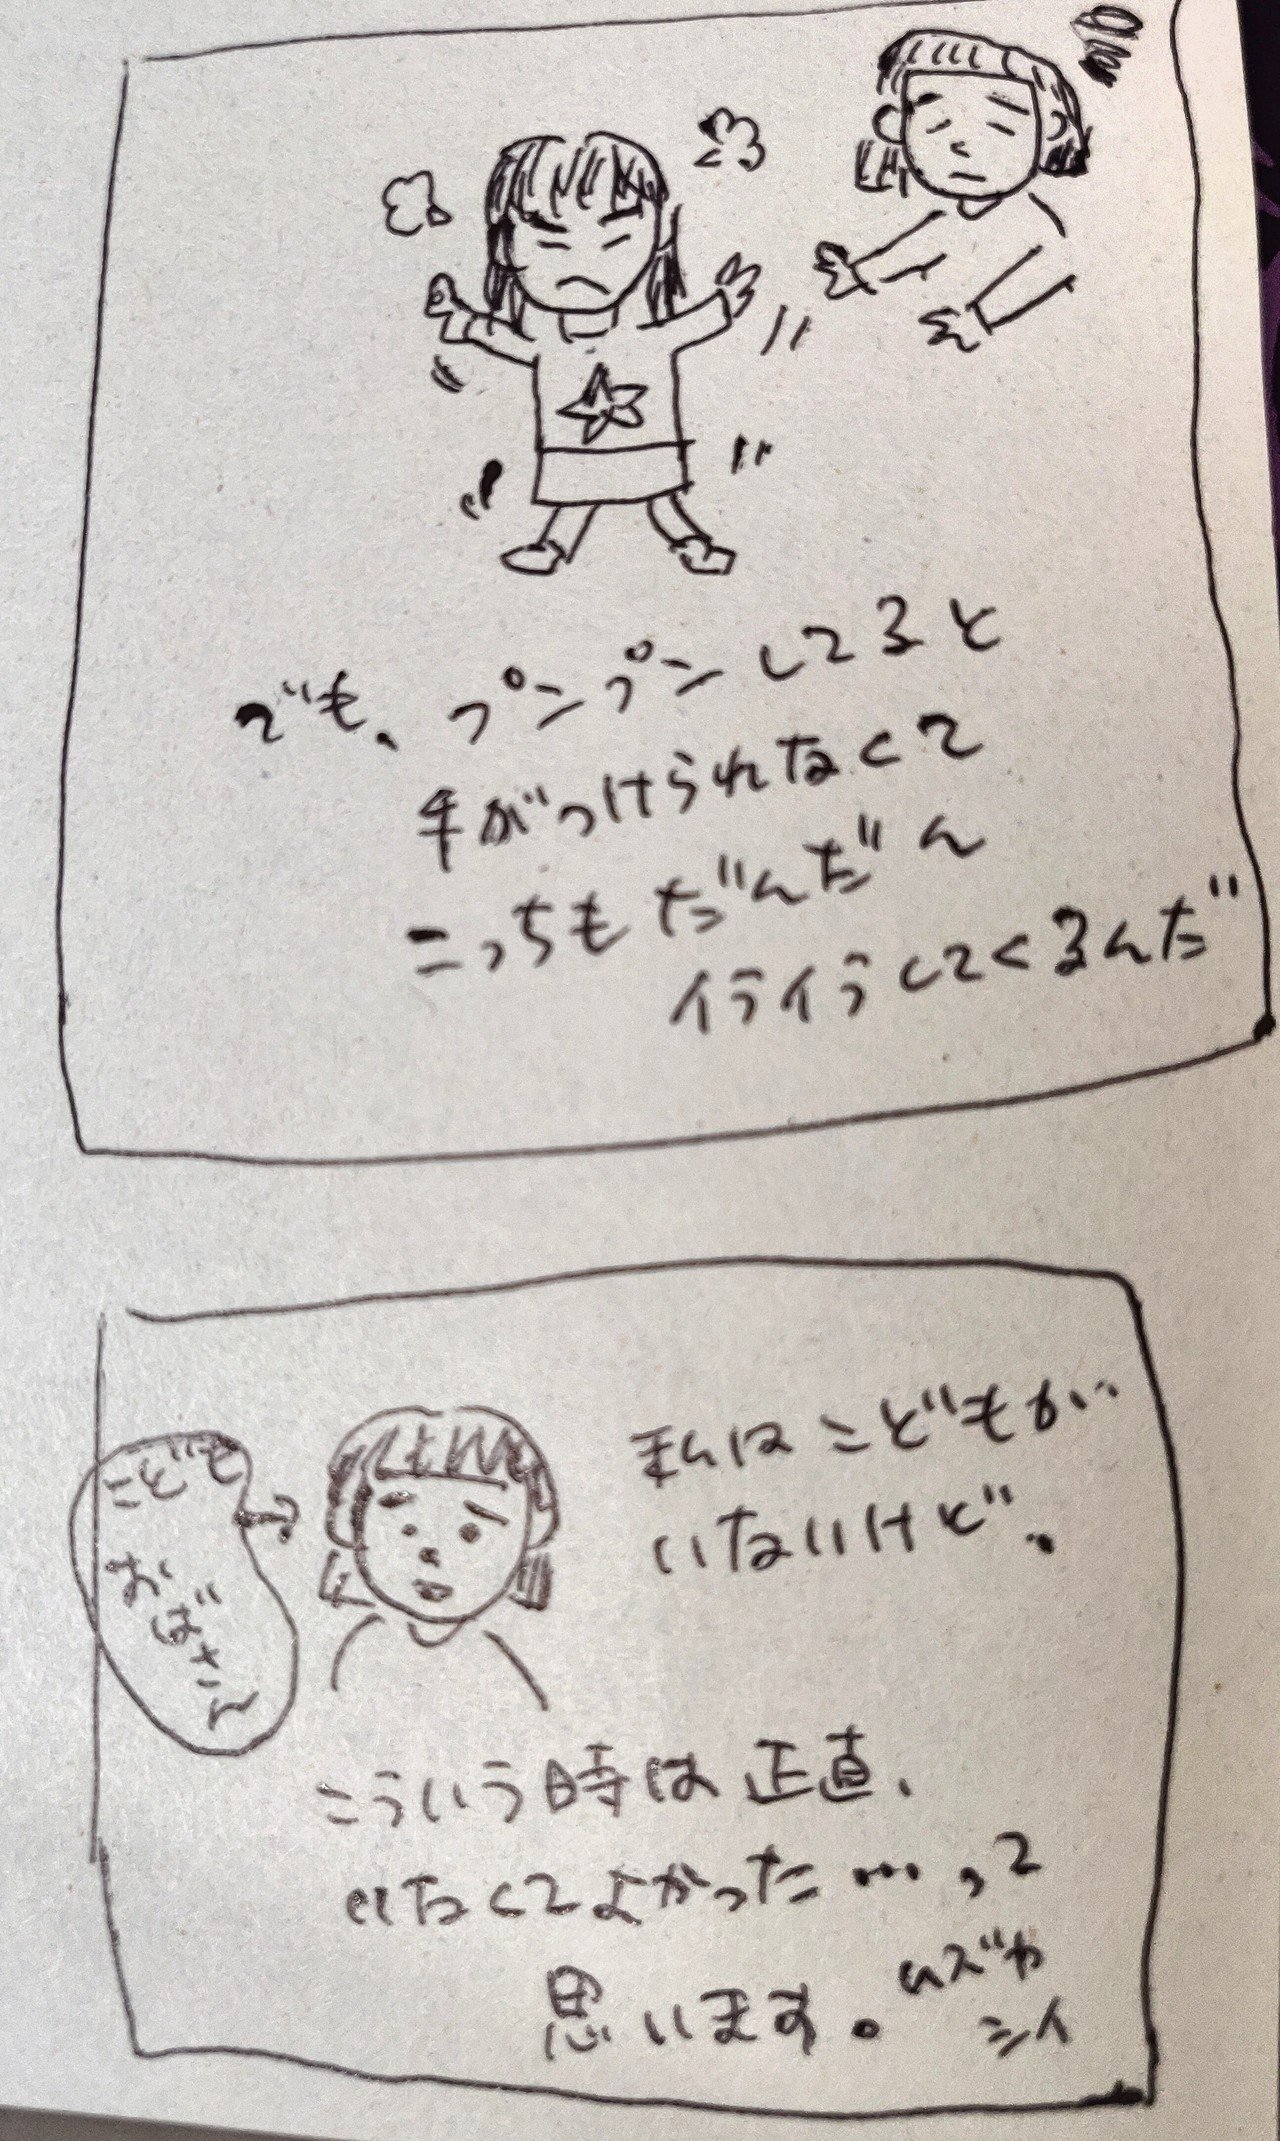 でも、プンプンしてると
手がつけられなくて
こっちもだんだん
イライラしてくるんだ
私はこどもが
いないけど、
こども
おばさん
こういう時は正直、
いなくてよかった…って
思います。
ムズカ
シイ